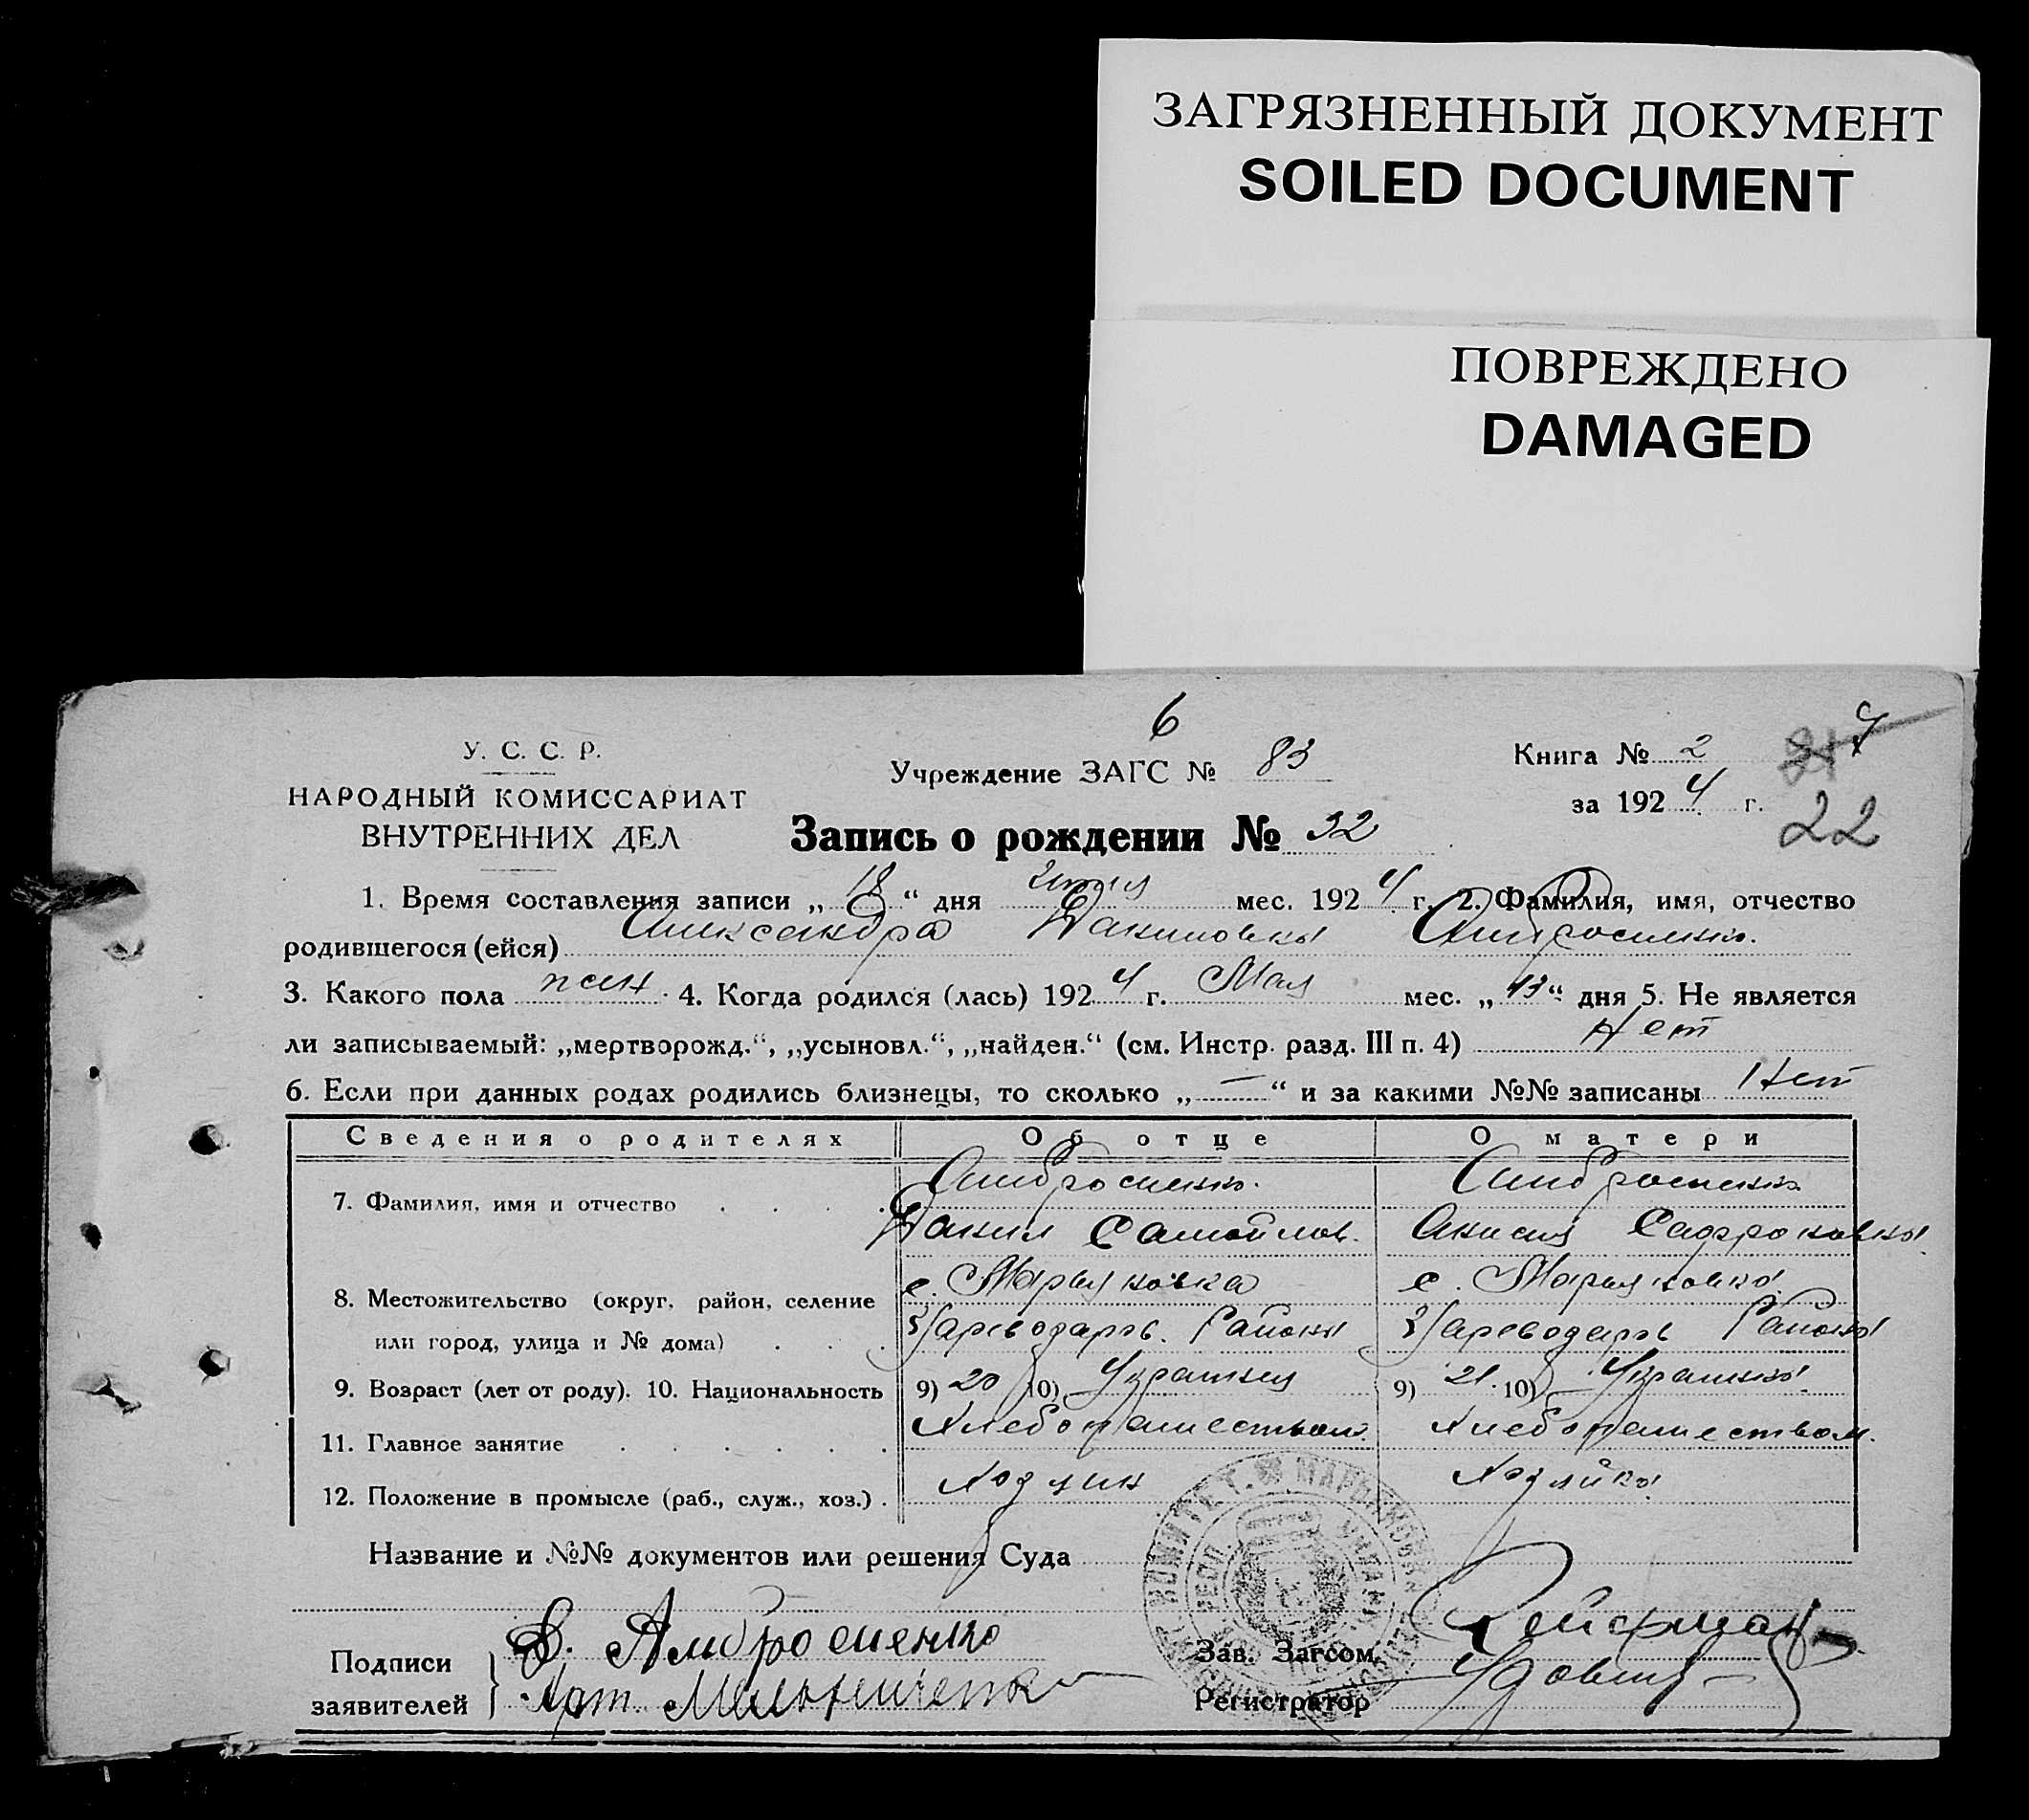 ЗАГРЯЗНЕННЫЙ ДОКУМЕНТ
SOILED DOCUMENT
ПОВРЕЖДЕНО
DAMAGED
6
У. С. С. Р.
НАРОДНЫЙ КОМИССАРИАТ
ВНУТРЕННИХ ДЕЛ
Учреждение ЗАГС № 83
Книга № 2
за 1924 г.
22
Запись о рождении № 32
1. Время составления записи „18“ дня мес. 1924 г. 2. Фамилия, имя, отчество
родившегося (ейся) Александра Даниловна Амбросиенко.
3. Какого пола жен. 4. Когда родился (лась) 1924 г. Мая мес. „13“ дня 5. Не является
ли записываемый: „мертворожд.“, „усыновл.“, „найден.“ (см. Инстр. разд. III п. 4) Нет
6. Если при данных родах родились близнецы, то сколько „—“ и за какими №№ записаны Нет
Сведения о родителях Об отце О матери
7. Фамилия, имя и отчество Амбросиенко. Амбросиенко
Данил Самойлов. Анисия Сафроновна
8. Местожительство (округ, район, селение с. Марьяновка с. Марьяновка
или город, улица и № дома) Цареводаров. Района Цареводаров Района
9. Возраст (лет от роду). 10. Национальность 9) 20 10) 9) 21. 10)
11. Главное занятие Хлебопашеством Хлебопашеством.
12. Положение в промысле (раб., служ., хоз.) . Хозяин Хозяйка
Название и №№ документов или решения Суда
Подписи
заявителей
Д. Амбросиенко
Зав. Загсом. Рейсман
Регистратор